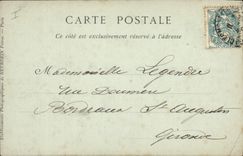 CARTE POSTALE
Ce côté est exclusivement réservé à l'adresse
Mademoiselle Legendre
rue Daumier
Bordeaux St Augustin
Gironde